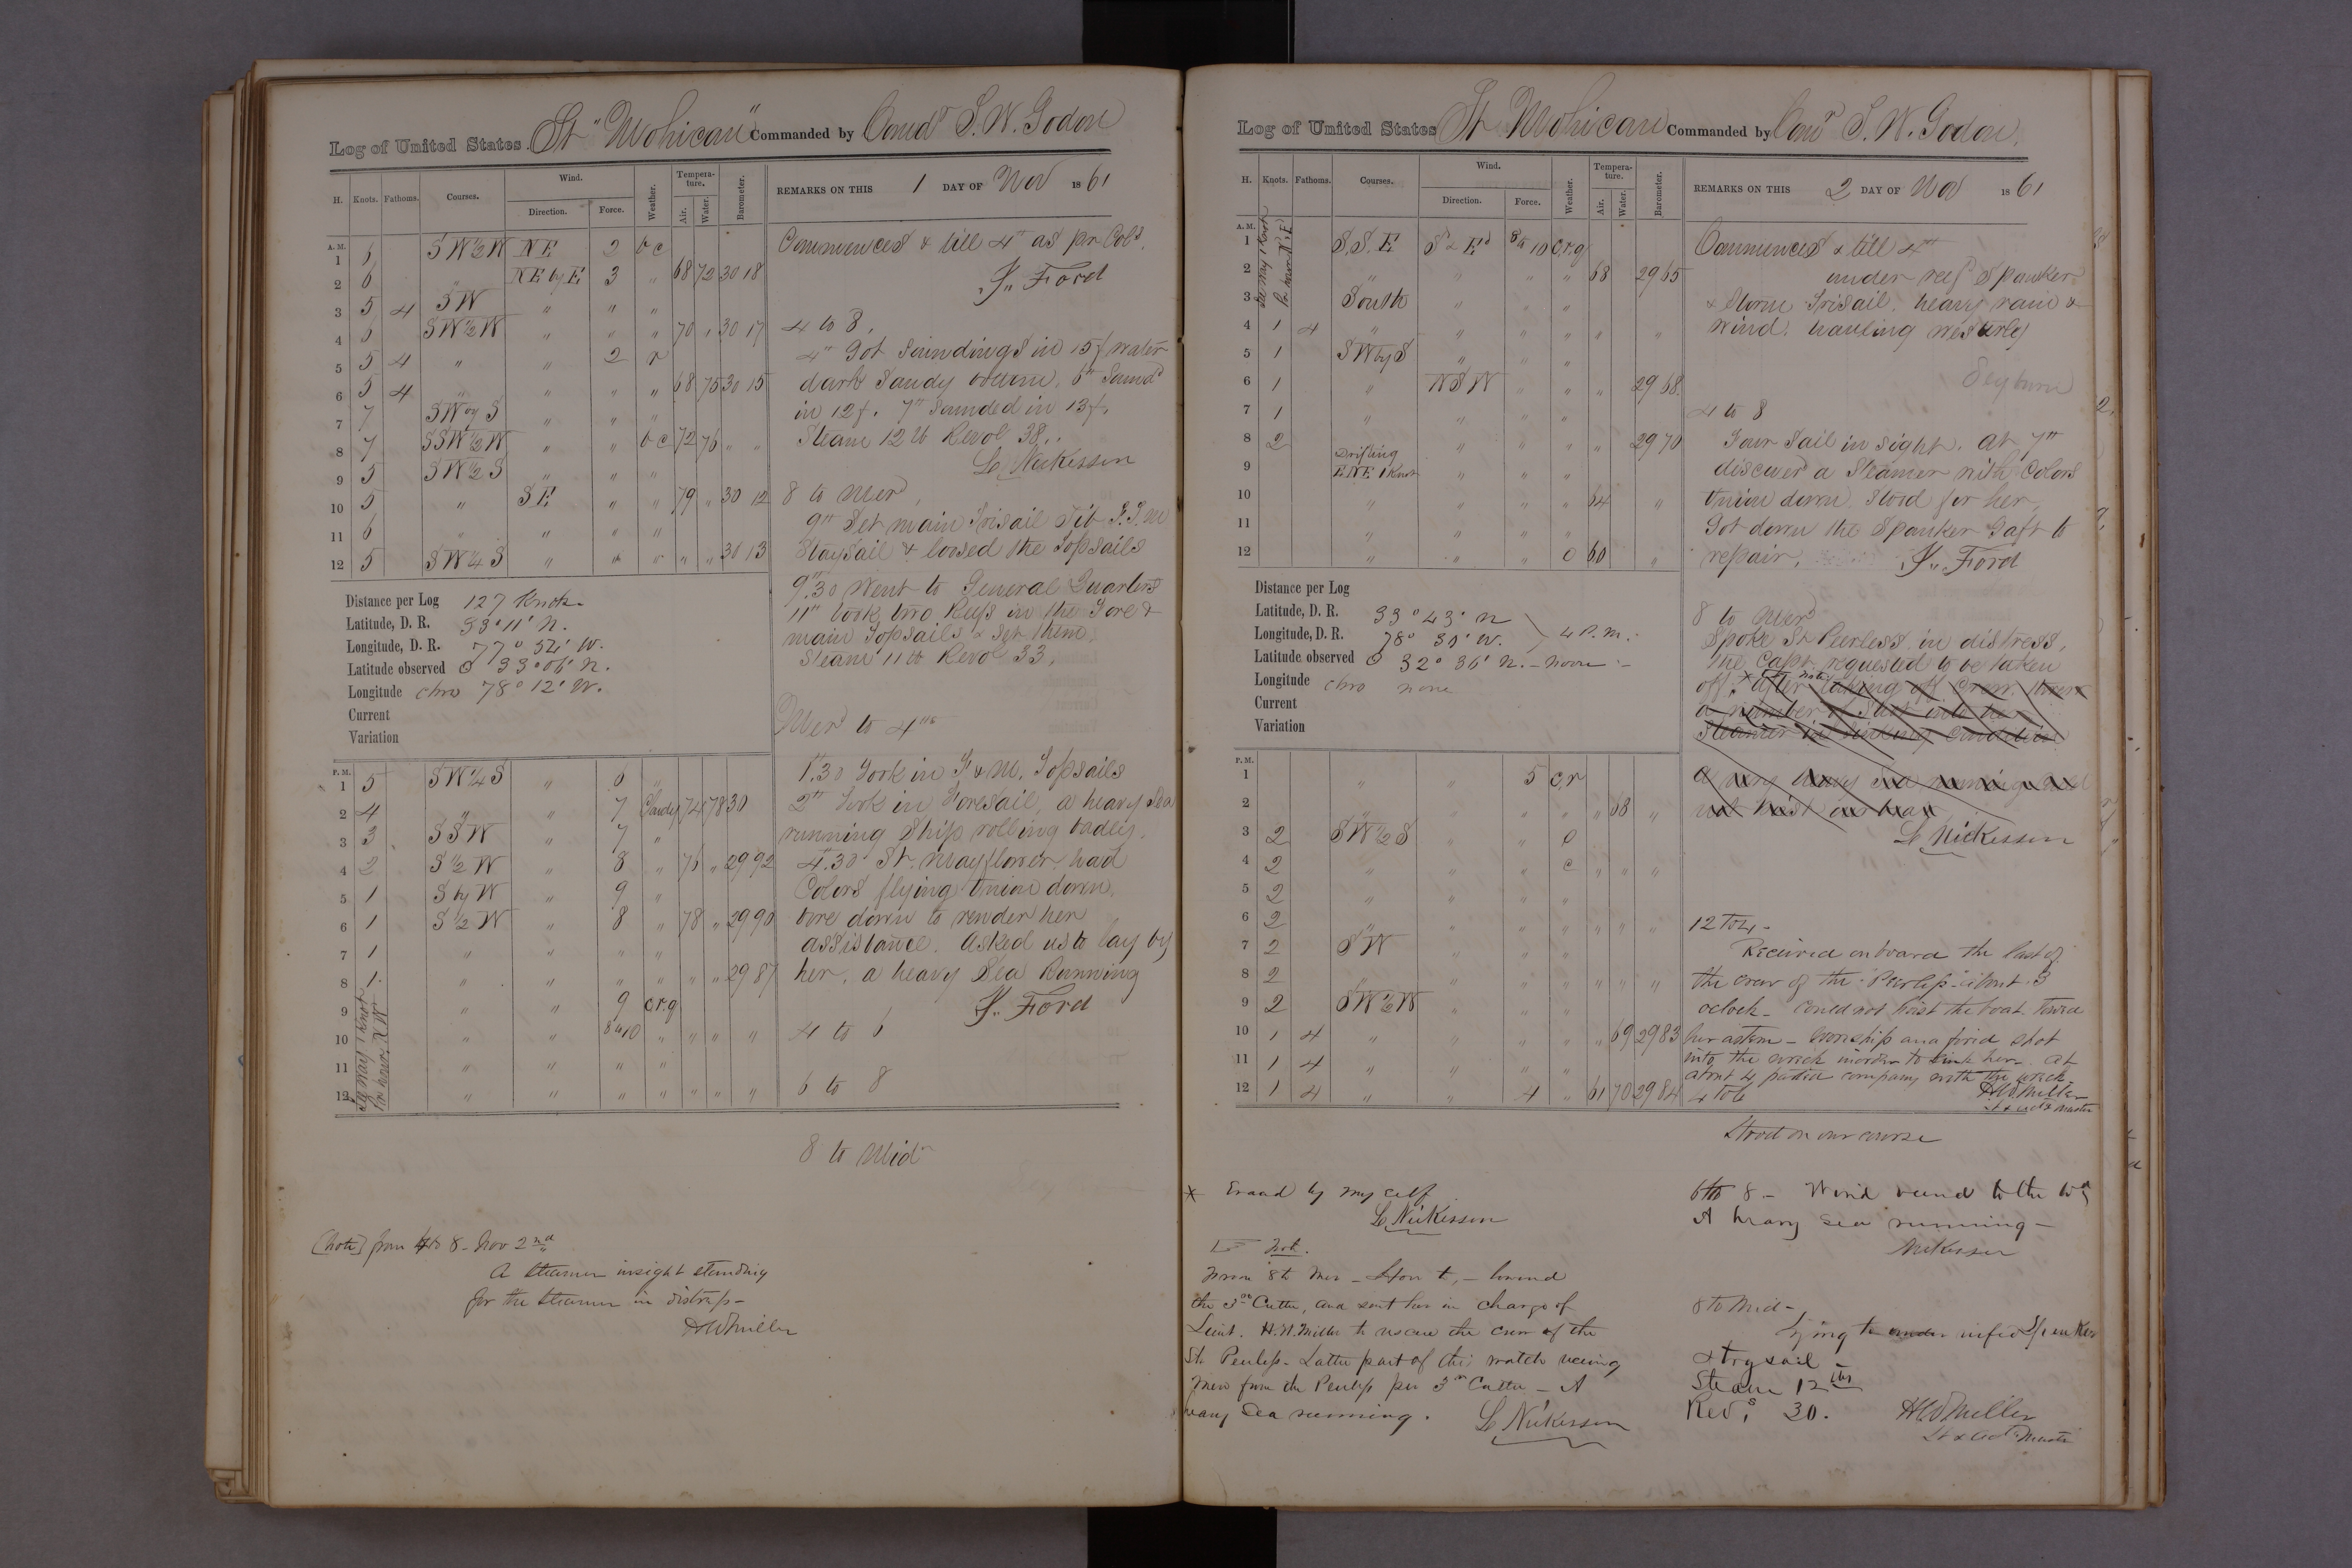 Log of United States St "Mohican" Commanded by Comdr S. W. Godon
H. Knots. Fathoms. Courses. Wind. Direction. Force. Weather. Temperature. Air. Water. Barometer.
REMARKS ON THIS 1 DAY OF Nov 1861
A. M.
1 6 SW½W NE 2 bc
2 6 " NE by E 3 " 68 72 30 18
3 5 4 SW " " "
4 6 SW½W " " " 70 " 30 17
5 5 4 " " 2 r
6 5 4 " " " " 68 75 30 15
7 7 SW by S " " "
8 7 SSW½W " " bc 72 76 " "
9 5 SW½S " " "
10 5 " SE " " 79 " 30 12
11 6 " " " "
12 5 SW¼S " " " " " 30 13
Commences & till 4" as pr Cols.
J. Ford
4 to 8.
4" Got Soundings in 15 f water
dark Sandy bottom. 6" Sound
in 12 f. 7" Sounded in 13 f.
Steam 12 lb Revol 38.
L. Nickisson
8 to Mer
9" Set main Trisail Jib F.T.M
Staysail & loosed the Topsails
9".30 Went to General Quarters
11" took two Reefs in the Fore &
main Topsails & Set them.
Steam 11 lb Revol 33.
Distance per Log 127 Knots
Latitude, D. R. 33° 11' N.
Longitude, D. R. 77° 54' W.
Latitude observed ʘ 33° 06' N.
Longitude chro 78° 12' W.
Current
Variation
P. M.
1 5 SW¼S " 6 "
2 4 " " 7 Cloudy 74 78 30
3 3 SSW " 7 "
4 2 S½W " 8 " 76 " 29 92
5 1 S by W " 9 "
6 1 S½W " 8 " 78 " 29 90
7 1 " " " "
8 1 " " " " " " 29 87
9 " " 9 c.r.g
10 " " 8 to 10 " " " "
11 " " " "
12 " " " " " " "
Lee Way 1 Knot
Per hour
Mer to 4"
1".30 Took in F & M. Topsails
2" Took in Foresail, a heavy Sea
running Ship rolling badly.
4".30 St. Mayflower had
Colors flying Union down.
bore down to render her
assistance. Asked us to lay by
her. a heavy Sea Running
J. Ford
4 to 6
6 to 8
8 to Mid
(Note) from 4 to 8 - Nov 2nd
A steamer insight standing
for the steamer in distress -
HWMiller
Log of United States St Mohican Commanded by Comr S. W. Godon.
H. Knots. Fathoms. Courses. Wind. Direction. Force. Weather. Temperature. Air. Water. Barometer.
REMARKS ON THIS 2 DAY OF Nov 1861
A. M.
1 S.S.E S & Ed 8 to 10 c.r.g
2 " " " " 68 29 65
3 South " " "
4 1 4 " " " " " "
5 1 SW by S " " "
6 1 " WSW " " " 29 68
7 1 " " " "
8 2 " " " " 29 70
9 Drifting ENE 1 Knot " " "
10 " " " " 64 "
11 " " " "
12 " " " o 60 "
Lee Way 1 Knot
Per hour N.E
Commences & till 4"
under reef Spanker
& Storm Trisail. heavy rain &
wind. hauling westerly
Seyburn
4 to 8
Four Sail in sight. at 7"
discover'd a Steamer with Colors
Union down. Stood for her.
Got down the Spanker Gaft to
repair. J. Ford
8 to Mer
Spoke St Peerless in distress,
the Capt. requested to be taken
off. * after taking off Crew, threw
a number of Shot into her
Steamer in sinking condition
a very heavy sea running could
not hoist our boat
L. Nickisson
Distance per Log
Latitude, D. R. 33° 43' N
Longitude, D. R. 78° 30' W. 4 P.M.
Latitude observed ʘ 32° 36' N. - Noon -
Longitude chro none
Current
Variation
P. M.
1 " " 5 c,r
2 " " " " " 68 "
3 2 SW½S " " o
4 2 " " " c " " "
5 2 " " " "
6 2 " " " " " " "
7 2 SW " " "
8 2 " " " " " " "
9 2 SW½W " " "
10 1 4 " " " " " 69 29 83
11 1 4 " " " "
12 1 4 " " 4 " 61 70 29 84
12 to 4 -
Received on board the last of
the crew of the "Peerless" about 3
oclock - could not hoist the boat. towed
her astern - wore ship and fired shot
into the wreck in order to sink her. At
about 4 parted company with the wreck.
HWMiller
Lt & Actg Master
4 to 6
Stood on our course
6 to 8 - Wind veered to the Wd
A heavy sea running -
Nickisson
8 to Mid -
Lying to under reefed Spanker
& trysail -
Steam 12 lbs
Revs 30.
HWMiller
Lt & Actg Master
* Erased by my self
L. Nickisson
☞ Note.
From 8 to Mer - Hove to, - lowered
the 3rd Cutter, and sent her in charge of
Lieut. H.W. Miller to rescue the crew of the
St. Peerless - Latter part of this watch receiving
Men from the Peerless per 3rd Cutter - A
heavy Sea running.
L. Nickisson